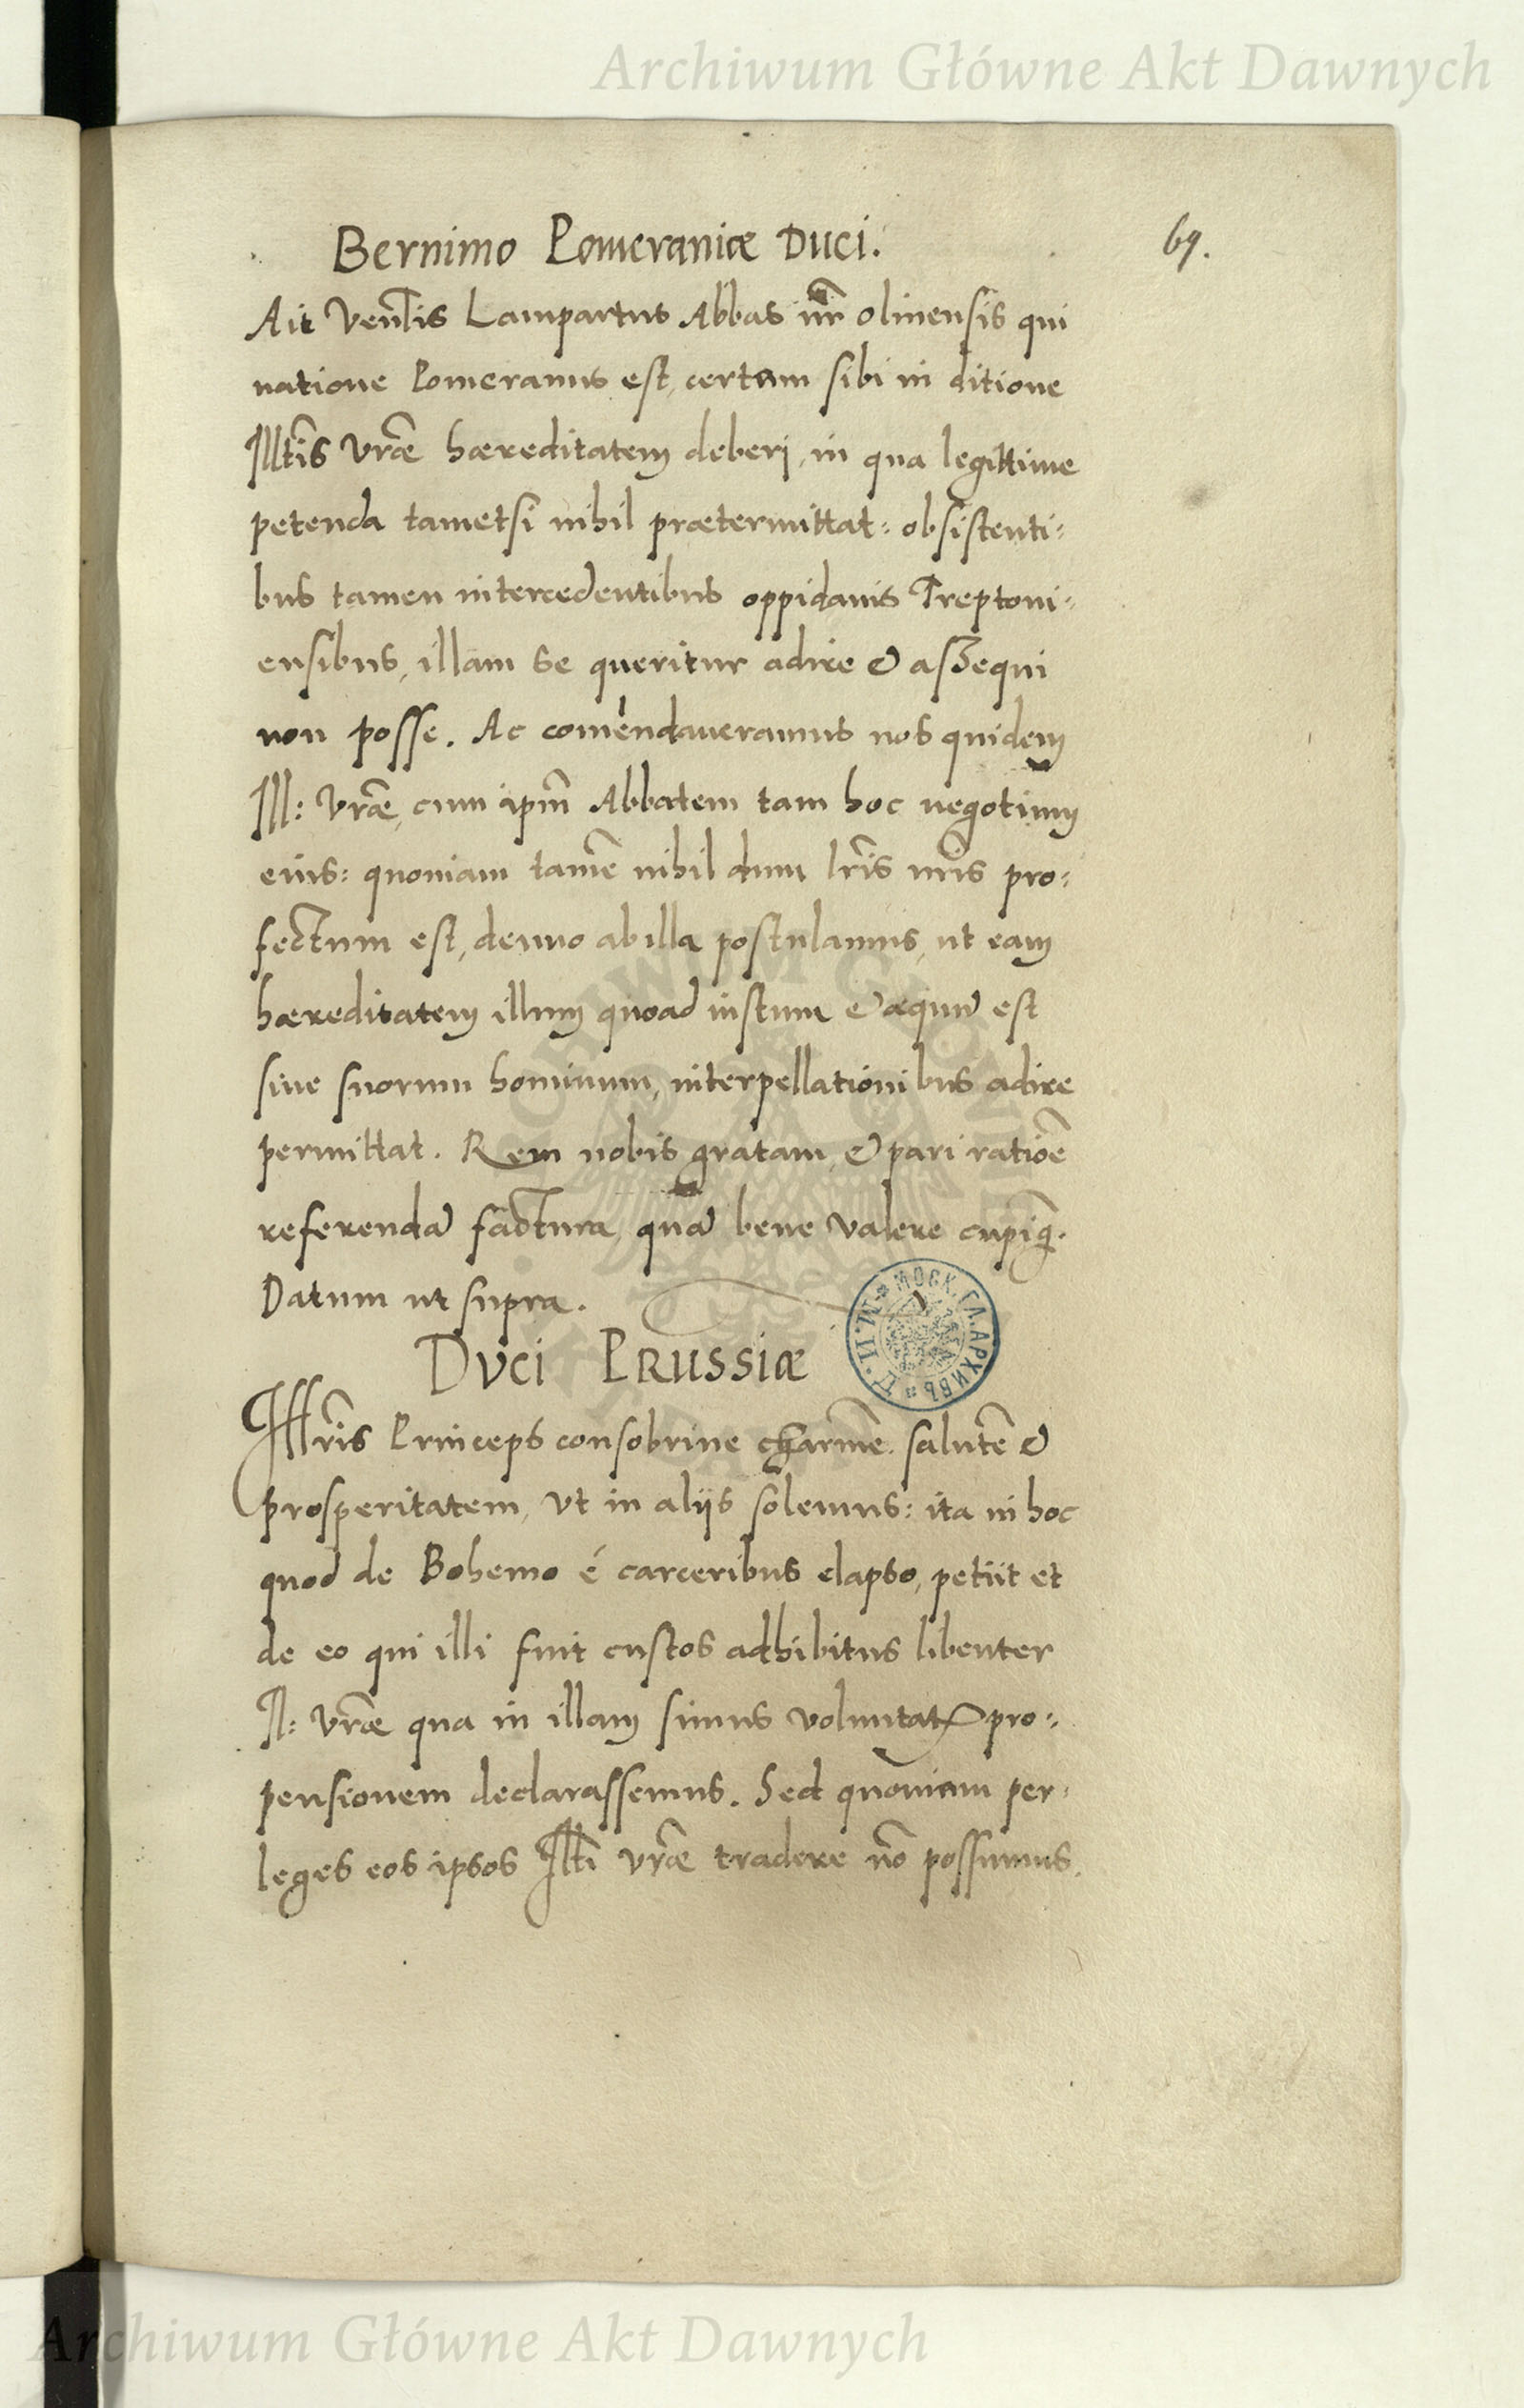 Archiwum Główne Akt Dawnych
69.
Bernimo Pomeraniæ Duci.
Ait Venlis Lampartus Abbas nr̃ olinensis qui
natione Pomeranus est, certam sibi in ditione
Illtis Vræ hæreditatem deberi, in qua legittime
petenda tametsi nihil prætermittat: obsistenti-
bus tamen intercedentibus oppidanis Treptoni-
ensibus, illam se queritur adire & assequi
non posse. Ac comendaueramus nos quidem
Ill: Vræ, cum ipm̃ Abbatem tam hoc negotium
eius: quoniam tamẽ nihil dum lr̃is nr̃is pro-
fectum est, denuo ab illa postulamus, ut eam
hæreditatem illum quoad iustum & æquũ est
sine suorum hominum, interpellationibus adire
permittat. Rem nobis gratam, & pari ratiõe
referendã factura, quã bene valere cupimq.
Datum ut supra.
МОСК. ГЛ. АРХИВЪ
Duci Prussiæ
Illris Princeps consobrine charme. salutẽ &
prosperitatem, Vt in aliis solemus: ita in hoc
quod de Bohemo é carceribus elapso, petiit et
de eo qui illi fuit custos adhibitus libenter
Il: Vræ qua in illam simus voluntatis pro-
pensionem declarassemus. Sed quoniam per
leges eos ipsos Illti vræ tradere nõ possumus.
Archiwum Główne Akt Dawnych